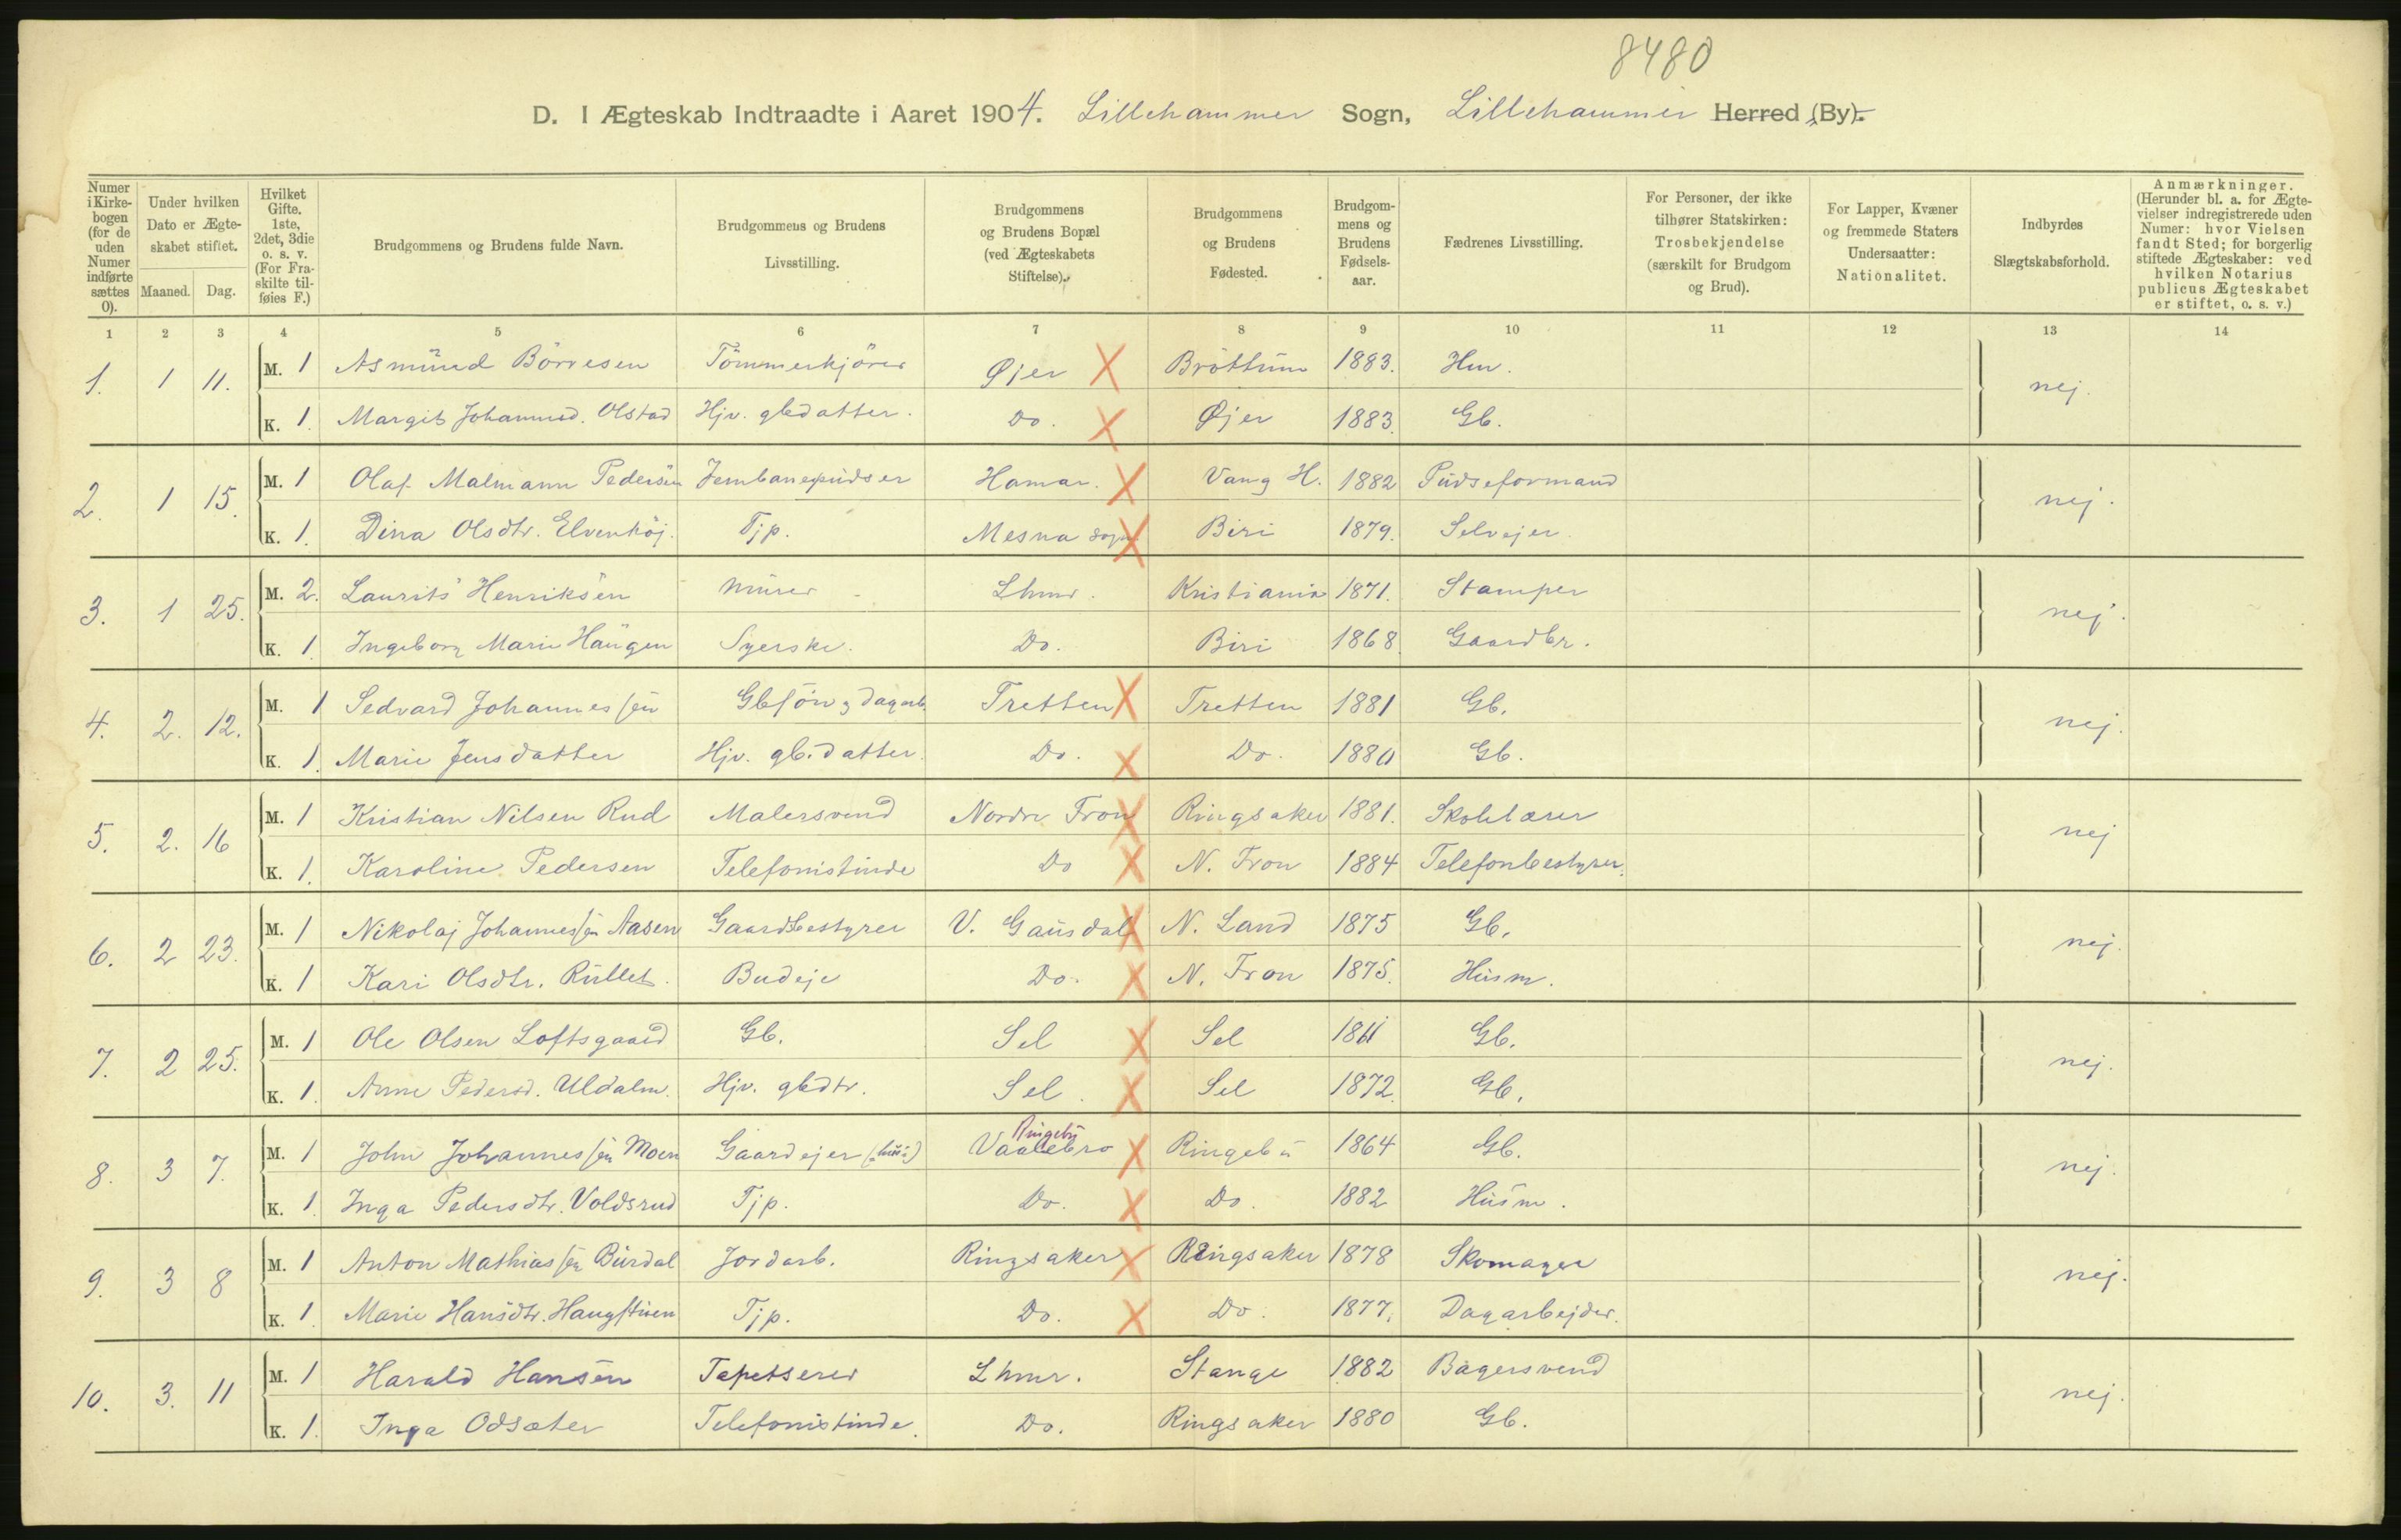 8480
D. I Ægteskab Indtraadte i Aaret 1904. Lillehammer Sogn, Lillehammer Herred (By).
Numer i Kirkebogen (for de uden Numer indførte sættes 0). | Under hvilken Dato er Ægteskabet stiftet. Maaned. Dag. | Hvilket Gifte. 1ste, 2det, 3die o. s. v. (For Fraskilte tilføies F.) | Brudgommens og Brudens fulde Navn. | Brudgommens og Brudens Livsstilling. | Brudgommens og Brudens Bopæl (ved Ægteskabets Stiftelse). | Brudgommens og Brudens Fødested. | Brudgommens og Brudens Fødselsaar. | Fædrenes Livsstilling. | For Personer, der ikke tilhører Statskirken: Trosbekjendelse (særskilt for Brudgom og Brud). | For Lapper, Kvæner og fremmede Staters Undersaatter: Nationalitet. | Indbyrdes Slægtskabsforhold. | Anmærkninger. (Herunder bl. a. for Ægtevielser indregistrerede uden Numer: hvor Vielsen fandt Sted; for borgerlig stiftede Ægteskaber: ved hvilken Notarius publicus Ægteskabet er stiftet, o. s. v.)
1 2 3 4 5 6 7 8 9 10 11 12 13 14
1. 1 11. M. 1 Asmund Börresen Tömmerkjörer Øjer Bröttum 1883. Hm. nej.
K. 1. Margit Johannesd. Olstad Hjv. gbdatter. Do. Øjer 1883. Gb.
2. 1 15. M. 1 Olaf Malmann Pedersen Jernbanepudser Hamar. Vang H. 1882 Pudseformand nej.
K. 1. Dina Olsdtr. Elvenhöj. Tjp. Mesna sogn Biri 1879. Selvejer.
3. 1 25. M. 2. Laurits Henriksen Murer Lhmr. Kristiania 1871. Stamper nej.
K. 1. Ingeborg Marie Haugen Syerske. Do. Biri 1868. Gaardbr.
4. 2. 12. M. 1 Sedvard Johannessen Gbsön og dagarb. Tretten Tretten 1881 Gb. nej.
K. 1. Marie Jensdatter Hjv. gb.datter. Do. Do. 1880 Gb.
5. 2. 16 M. 1 Kristian Nilsen Rud Malersvend Nordre Fron Ringsaker 1881. Skolelærer nej
K. 1. Karoline Pedersen Telefonistinde Do N. Fron 1884 Telefonbestyrer.
6. 2 23. M. 1 Nikolaj Johannessen Aasen Gaardbestyrer V. Gausdal N. Land 1875 Gb. nej.
K. 1 Kari Olsdtr. Rullet. Budeje Do. N. Fron 1875. Husm.
7. 2 25. M. 1 Ole Olsen Loftsgaard Gb. Sel Sel Gb. nej.
K. 1. Anne Pedersd. Uldalm. Hjv. gbdtr. Sel. Sel 1872. Gb.
Ringebu
8. 3 7. M. 1 John Johannessen Moen Gaardejer Vaalebro Ringebu 1864 Gb. nej.
K. 1. Inga Pedersdtr. Voldsrud Tjp. Do. Do. 1882 Husm.
9. 3 8 M. 1 Anton Mathiassen Burdal Jordarb. Ringsaker Ringsaker 1878 Skomager nej.
K. 1. Marie Hansdtr. Haugstuen Tjp. Do. Do. 1877. Dagarbejder.
10. 3. 11 M. 1 Harald Hansen Tapetserer Lhmr. Stange 1882 Bagersvend nej.
K. 1. Inga Odsæter Telefonistinde. Do. Ringsaker 1880 Gb.